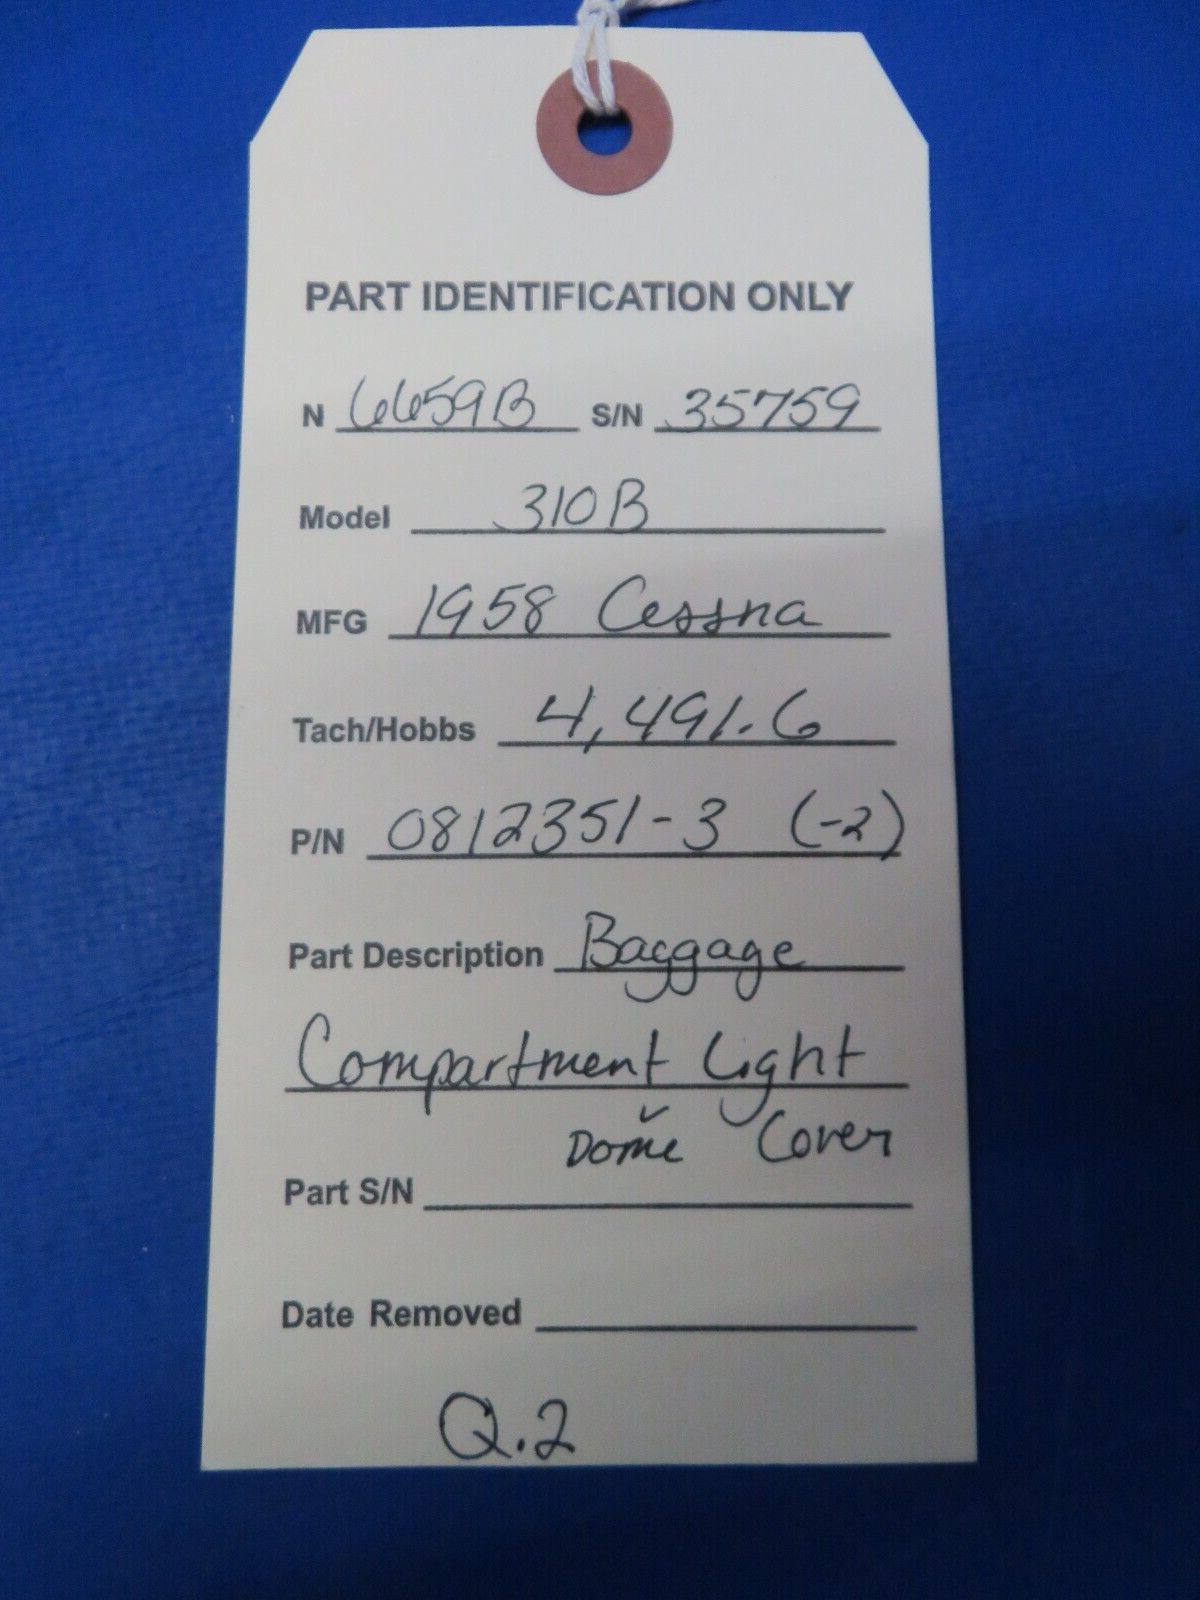 PART IDENTIFICATION ONLY
N 6659B S/N 35759
Model 310B
MFG 1958 Cessna
Tach/Hobbs 4,491.6
P/N 0812351-3 (-2)
Part Description Baggage
Compartment Light
Dome Cover
Part S/N
Date Removed
Q.2